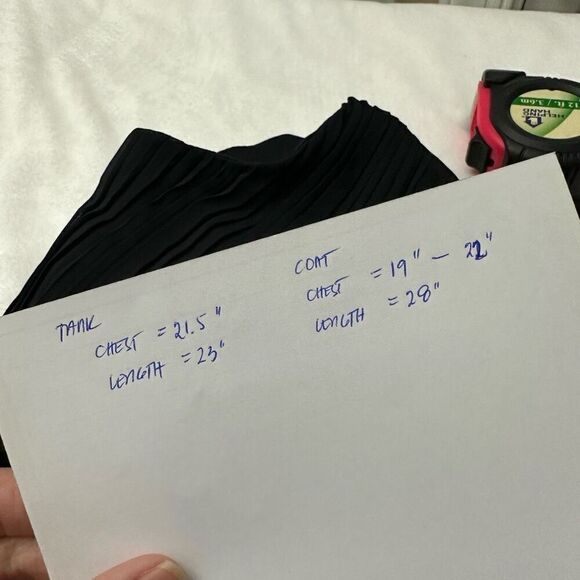 TANK
CHEST = 21.5"
LENGTH = 23"
COAT
CHEST = 19" - 22"
LENGTH = 28"
12 ft. / 3.6m
HELPING
HAND